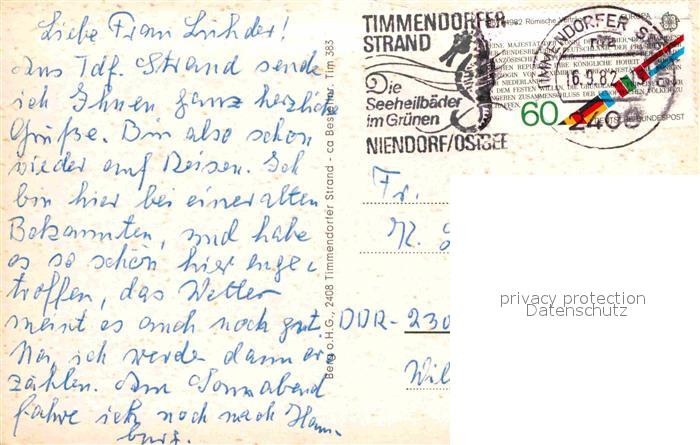 Liebe Frau
Aus Tdf. Strand sende
ich Ihnen ganz herzlich
Grüße. Bin also schon
wieder auf Reisen. Ich
bin hier bei einer alten
Bekannten, und habe
es so schön hier ange
troffen, das Wetter
meint es auch noch gut.
Na, ich werde dann er
zählen. Am Sonnabend
fahre ich noch nach Ham-
burg.
Berg o.H.G., 2408 Timmendorfer Strand - ca Bestellnr. Tim 383
TIMMENDORFER
STRAND
Die
Seeheilbäder
im Grünen
NIENDORF/OSTSEE
1982 Römische Verträge EUROPA
60
DEUTSCHE BUNDESPOST
TIMMENDORFER
16.9.82
2408
Fr.
DDR-230
Wil
privacy protection
Datenschutz